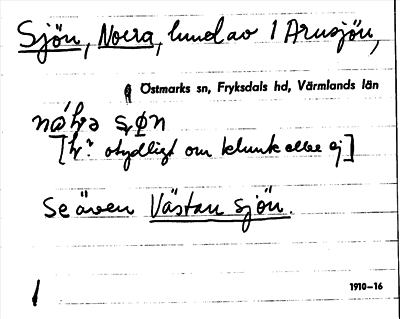 Sjön, Norra, lund av 1 Arnsjön,
Östmarks sn, Fryksdals hd, Värmlands län
[ otydligt om klunk eller ej]
Se även Västan sjön.
1910–16